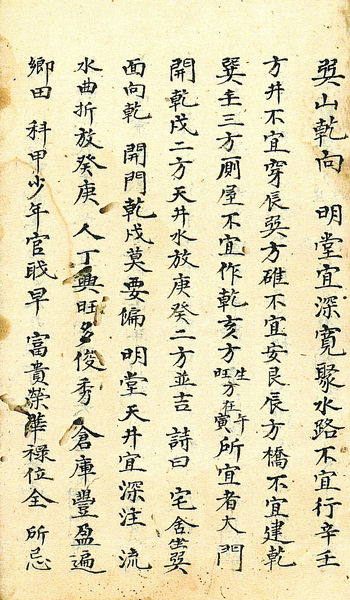 巽山乾向 明堂宜深寬聚水路不宜行辛壬
方井不宜穿辰巽方碓不宜安艮辰方橋不宜建乾
巽壬三方厠屋不宜作乾亥方生方在寅旺午所宜者大門
開乾戌二方天井水放庚癸二方並吉 詩曰 宅舍坐巽
面向乾 開門乾戌莫要偏 明堂天井宜深注 流
水曲折放癸庚 人丁興旺多俊秀 倉庫豐盈遍
鄉田 科甲少年官戝早 富貴榮華祿位全 所忌